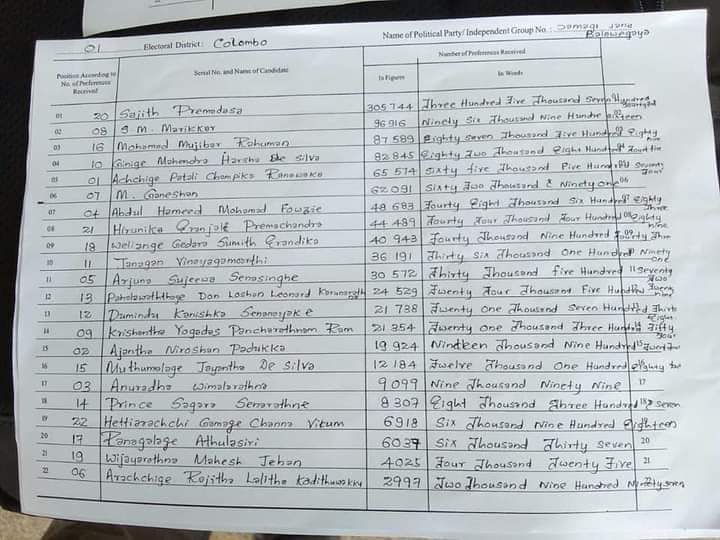 01 Electoral District: Colombo Name of Political Party/ Independent Group No.: Samagi Jana
Balawegaya
Position According to No. of Preferences Received Serial No. and Name of Candidate Number of Preferences Received
In Figures In Words
01 20 Sajith Premadasa 305744 Three Hundred Five Thousand Seven Hundred Fourty Four
02 08 S M. Marikkar 96916 Ninety Six Thousand Nine Hundre Sixteen
03 16 Mohamad Mujibar Rahuman 87589 Eighty Seven Thousand Five Hundred Eighty
04 10 Ginige Mahendra Harsha De Silva 82845 Eighty Two Thousand Eight Hundred Fourty five
05 01 Achchige Patali Champika Ranawaka 65574 Sixty five Thousand Five Hundred Seventy Four
06 07 M. Ganeshan 62091 Sixty Two Thousand & Ninety one 06
07 04 Abdul Hameed Mohamad Fowzie 48683 Fourty Eight Thousand Six Hundred Eighty Three
08 21 Hirunika Eranjali Premachandra 44489 Fourty Four Thousand Four Hundred 08 Eighty nine
09 18 Weliange Gedara Sumith Erandika 40943 Fourty Thousand Nine Hundred 09 Fourty Three
10 11 Janagan Vinayagamorthi 36191 Thirty Six Thousand One Hundred Ninety one
11 05 Arjuna Sujeewa Senasinghe 30572 Thirty Thousand five Hundred 11 Seventy Two
12 13 Don Loshan Leonard 24529 Twenty Four Thousand Five Hundred Twenty nine
13 12 Dumindu Kanishka Senanayake 21738 Twenty One Thousand Seven Hundred Thirty Eight
14 09 Krishantha Yogadas Pancharathnam Ram 21354 Twenty One Thousand Three Hundred 14 Fifty Four
15 02 Ajantha Niroshan Padukka 19924 Nindteen Thousand Nine Hundred 15
16 15 Muthumalage Jayantha De Silva 12184 Twelve Thousand One Hundred 16
17 03 Anuradha Wimalarathna 9099 Nine Thousand Ninety Nine 17
18 14 Prince Sagara Senarathne 8307 Eight Thousand Three Hundred 18 & seven
19 22 Hettiarachchi Gamage Channa Vitum 6918 Six Thousand Nine Hundred Eighteen
20 17 Ranagalage Athulasiri 6037 Six Thousand Thirty Seven 20
21 19 Wijayarathna Mahesh Jehan 4025 Four Thousand Twenty Five 21
22 06 Arachchige Rajitha Lalitha Kodithuwakku 2997 Two Thousand Nine Hundred Ninety seven